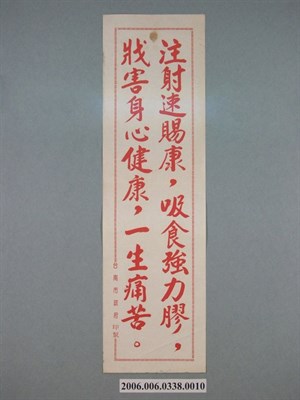 注射速賜康，吸食強力膠，
戕害身心健康，一生痛苦。
2006.006.0338.0010